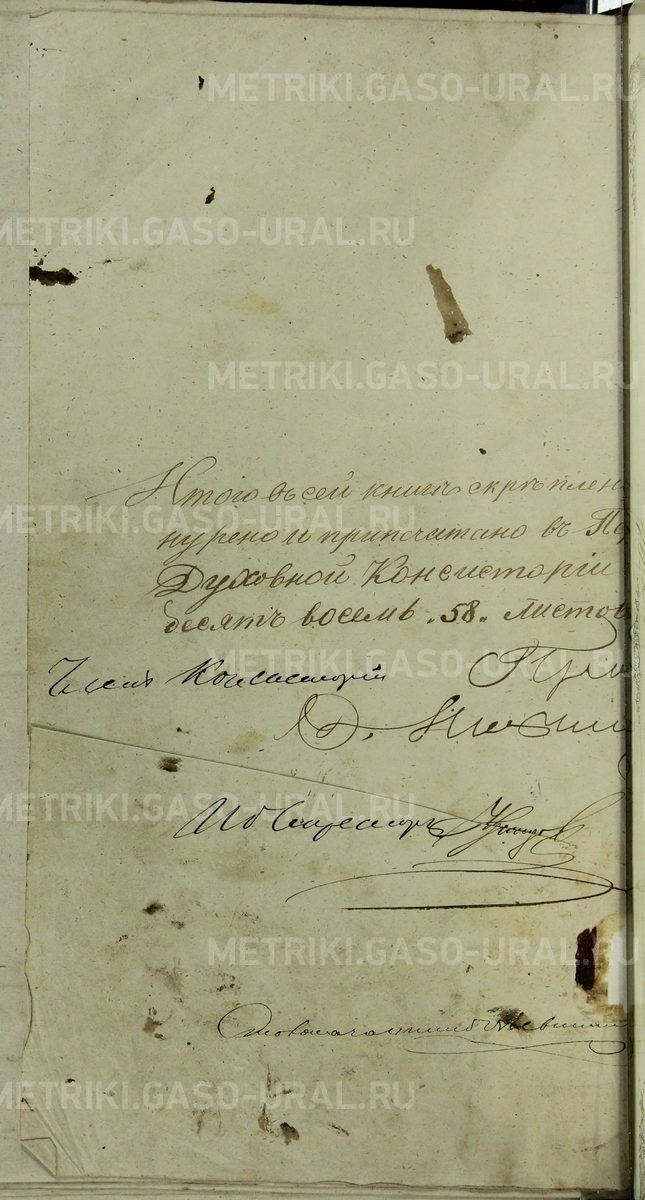 METRIKI.GASO-URAL.RU
METRIKI.GASO-URAL.RU
METRIKI.GASO-URAL.RU
Итого въ сей книгѣ скрѣплен
METRIKI.GASO-URAL.RU
нурено и припечатано въ Пе
Духовной Консисторіи
десятъ восемь „58„ листов
METRIKI.GASO-URAL.RU
Членъ Консисторіи
METRIKI.GASO-URAL.RU
Секретарь
METRIKI.GASO-URAL.RU
Столоначальникъ
METRIKI.GASO-URAL.RU